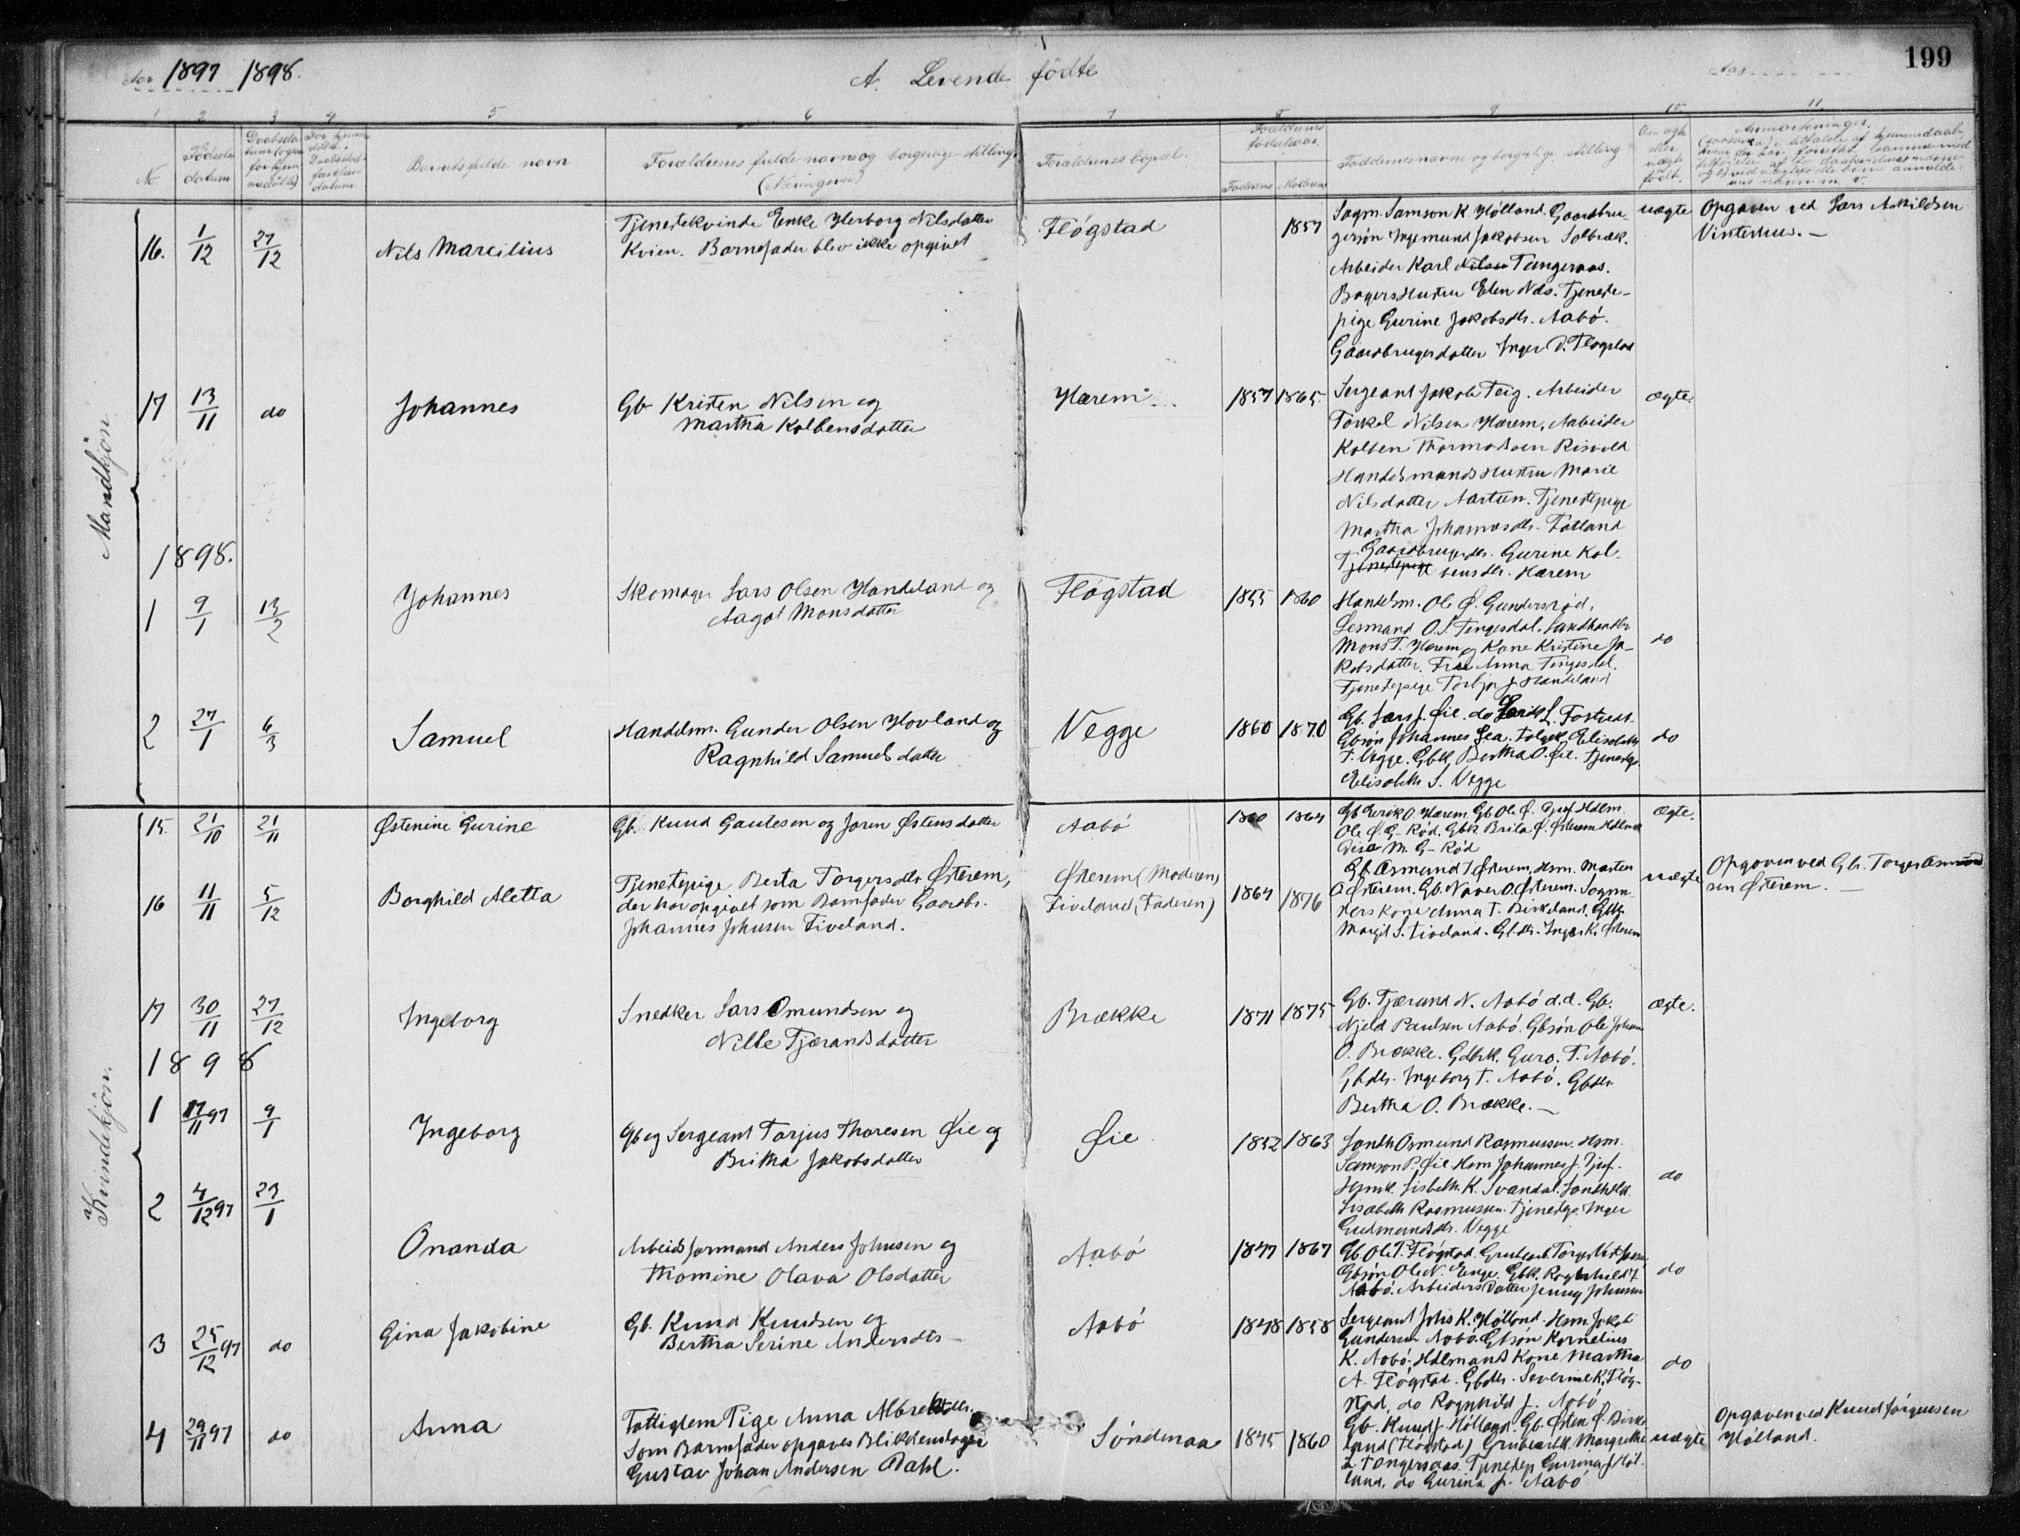 Aar 1897 1898.
A. Levende fødte
Aar
199
1 2 3 4 5 6 7 8 9 10 11
No. Fødsels datum
Barnets fulde navn
Forældrenes fulde navne og borgerlige stilling
(Næringsvei)
Forældrenes bopæl.
Forældrenes fødselsaar.
Faderens Moderens
Faddernes navne og borgerlige stilling
Om ægte eller uægte født.
Anmærkninger.
Mandkjøn
16. 1/12 27/12 Nils Marcilius
Tjenestekvinde Enke Herborg Nilsdatter
Kvien. Barnefader blev ikke opgivet
Fløgstad
1857
Sogm. Samson K. Hølland. Gaardbru-
gersøn Ingemund Jakobsen Solbræk.
Arbeider Karl Nilsen Tengeraas.
Bagers Hustru Elen Nils. Tjeneste-
pige Gurine Jakobsdtr. Aabø.
Gaardbrugerdatter Inger O. Fløgstad
uægte
Opgaven ved Lars Askildsen
Vinterhus. —
17 13/11 do Johannes
Gb. Kristen Nilsen og
Martha Kolbensdatter
Hærem
1857 1865.
Sergeant Jakob Teig. Arbeider
Torkel Nilsen Hærem, Arbeider
Kolben Thormodsen Risvold
Handelsmands Hustru Marie
Nilsdatter Aartun. Tjenestepige
Martha Johannesdtr. Fatland
Gaardbrugerdtr. Gurine Kol-
Tjenestepige bensdtr. Hærem
ægte
1898.
1 9/1 13/2 Johannes
Skomager Lars Olsen Handeland og
Aagot Monsdatter
Fløgstad
1855 1860
Handelsm. Ole Ø. Gundersrød,
Lensmand O. S. Tengesdal. Landhandler
Mons T. Hærem og Kone Kristine Ja-
kobsdatter. Frue Anna Tengesdal.
Tjenestepige Torbjør J. Handeland
do
2 27/1 6/3 Samuel
Handelsm. Gunder Olsen Hovland og
Ragnhild Samuelsdatter
Vegge
1860 1870
Gb. Lars J. Øie. do Lars L. Fostvedt.
Gbsøn Johannes Lea. Elisabeth
T. Vegge. Gbk. Bertha O. Øie. Tjenestpg.
Elisabeth S. Vegge
do
Kvindekjøn.
15. 21/10 21/11 Østenine Gurine
Gb. Knud Gautesen og Joren Østensdatter
Aabø
1860 1864
Gb. Eerik O. Hærem. Gb Ole Ø. Tjuf. Hdlm.
Ole Ø. G- Rød. Gbk Brita Ø. Østerem. Hdlmk
M. G- Rød
ægte.
16 11/11 5/12 Borghild Aletta
Tjenestepige Berta Torgersdtr Østerem,
der har opgivet som Barnfader Gaardbr.
Johannes Johnsen Tiveland.
Østerem (Moderen)
Tiveland (Faderen)
1864 1876
Gb. Asmund T. Østerem, Hsm. Morten
O. Østerem. Gb. Naver O. Østerem. Sogm-
ders Kone Anna T. Birkeland. Gbk.
Margit S. Tiveland. Gbdtr. Inger K. Østerem
uægte
Opgaven ved Gb. Torger Asmund-
sen Østerem. —
17 30/11 27/12 Ingeborg
Snedker Lars Omundsen og
Nille Tjærandsdatter
Brække
1871 1875
Gb. Tjærand N. Aabø d.d. Gb.
Njeld Paulsen Aabø. Gbsøn Ole Johan
O. Brække. Gdbrk. Guro. T. Aabø.
Gbdtr. Ingeborg T. Aabø. Gbdtr.
Bertha O. Brække. —
ægte.
1898
1 17/11 97 9/1 Ingeborg
Gb og Sergeant Torjus Thoresen Øie og
Britha Jakobsdatter
Øie
1852 1863
Landh Osmund Rasmussen. Hsm.
Samson P. Øie. Hsm Johannes J. Tjuf.
Hsmk. Lisbeth K. Svandal. Landhk.
Lisabeth Rasmussen. Tjenestpg. Inger
Gudmundsdtr. Vegge
do
2 4/12 97 23/1 Onanda
Arbeidsformand Anders Johnsen og
Thomine Olava Olsdatter
Aabø
1847 1867
Gb. Ole P. Fløgstad.
Gbsøn Ole N. Enge. Gbk. Ragnhild T.
Aabø. Arbeiders Datter Jenny Johnsen
do
3 25/12 97 do Gina Jakobine
Gb. Knud Knudsen og
Bertha Serine Andersdtr
Aabø
1848 1858
Sergeant Johs K. Hølland. Hsm. Jakob
Gundersen Aabø. Gbsøn Kornelius
K. Aabø. Hdlmands Kone Martha
A. Fløgstad. Gbdtr. Severine K. Fløg-
stad, do Ragnhild J. Aabø
do
4 29/11 97 do Anna
Fattiglem Pige Anna Albretsdtr.
Som Barnfader opgaves Blikkenslager
Gustav Johan Andersen Dahl.
Søndenaa
1845 1860
Gb. Knud J. Hølland. Gb. Østen Ø. Birke-
land (Fløgstad) Margrethe
L. Tengersaas. Tjenestep Gurina J. Høl-
land, do Gurina J. Aabø
uægte
Opgaven ved Knud Jørgensen
Hølland.